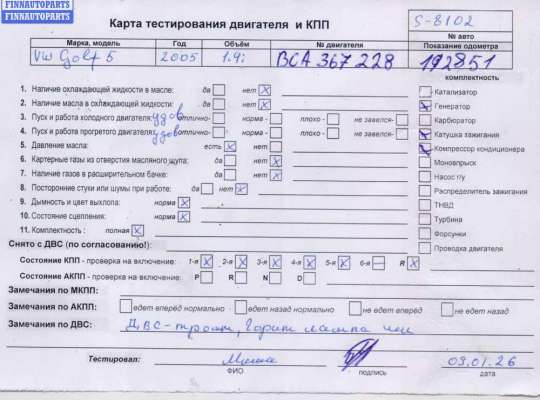 FINNAUTOPARTS
FINNAUTOPARTS
Карта тестирования двигателя и КПП
S-8102
№ авто
Марка, модель Год Объём № двигателя Показание одометра
VW Golf 5 2005 1.4i BCA 367 228 192851
комплектность
1. Наличие охлаждающей жидкости в масле: да нет X
2. Наличие масла в охлаждающей жидкости: да нет X
3. Пуск и работа холодного двигателя: удов отлично- норма - плохо - не завелся-
4. Пуск и работа прогретого двигателя: удов отлично- норма - плохо - не завелся-
5. Давление масла: есть X нет
6. Картерные газы из отверстия масляного щупа: да нет X
7. Наличие газов в расширительном бачке: да нет X
8. Посторонние стуки или шумы при работе: да нет X
9. Дымность и цвет выхлопа: норма X
10. Состояние сцепления: норма X
11. Комплектность : полная X
Катализатор
Генератор
Карбюратор
Катушка зажигания
Компрессор кондиционера
Моновпрыск
Насос г/у
Распределитель зажигания
ТНВД
Турбина
Форсунки
Проводка двигателя
Снято с ДВС (по согласованию!):
Состояние КПП - проверка на включение: 1-я X 2-я X 3-я X 4-я X 5-я X 6-я R X
Состояние АКПП - проверка на включение: P R N D
Замечания по МКПП:
Замечания по АКПП: едет вперёд нормально - едет назад нормально не едет вперёд не едет назад
Замечания по ДВС: ДВС-троит, Горит лампа чек
Тестировал: Миша 03.01.26
ФИО подпись дата